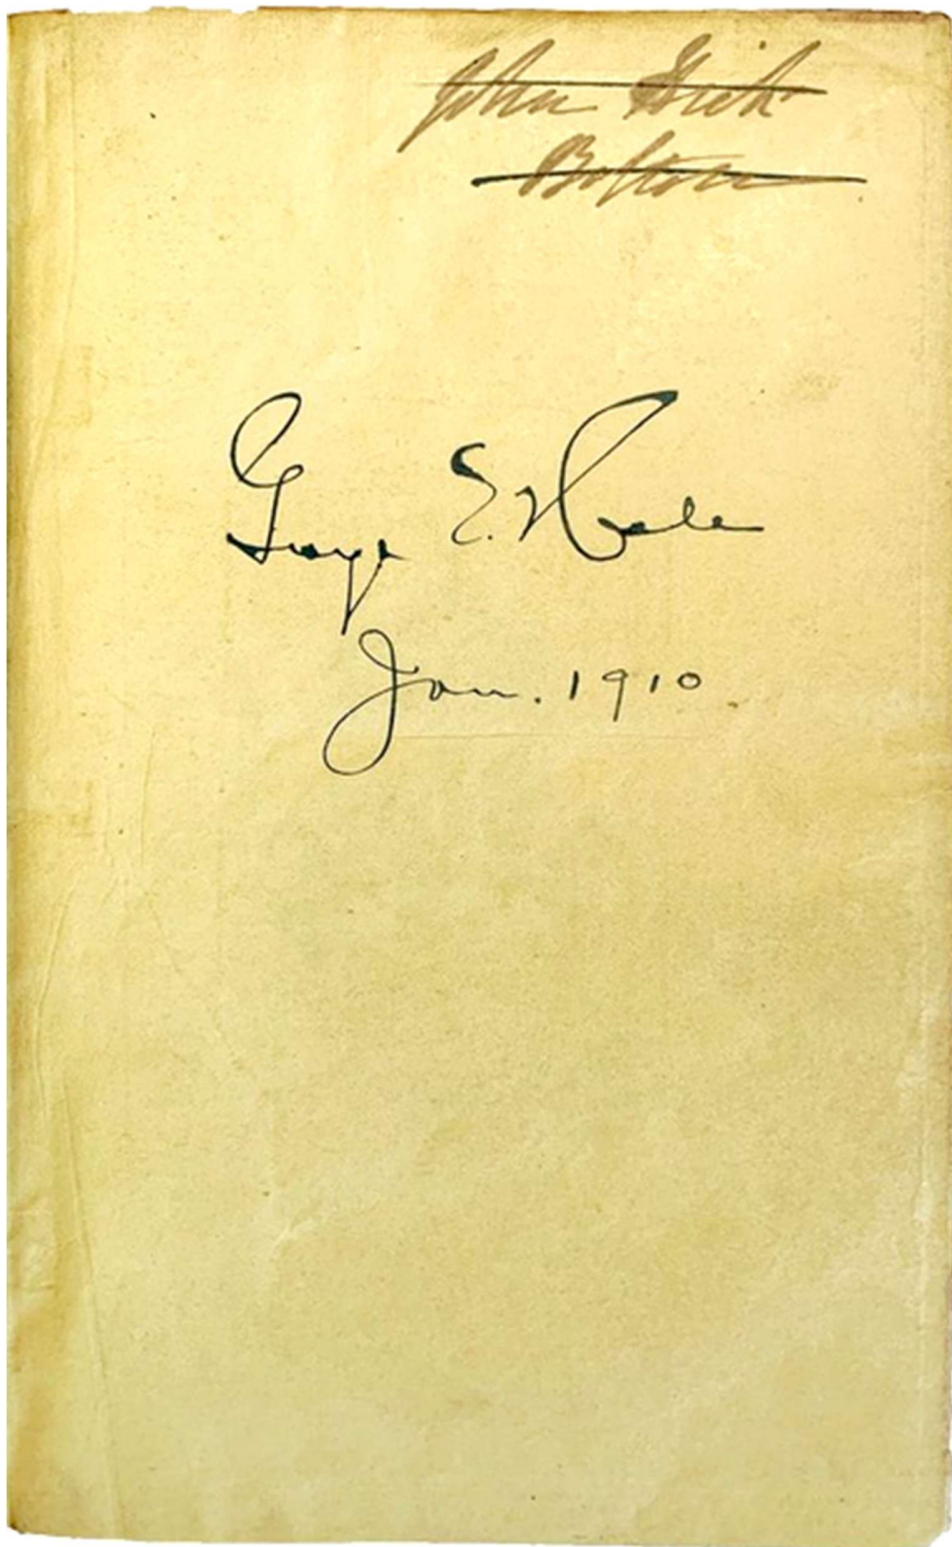 John
Bolton
George E. Hale
Jan. 1910.